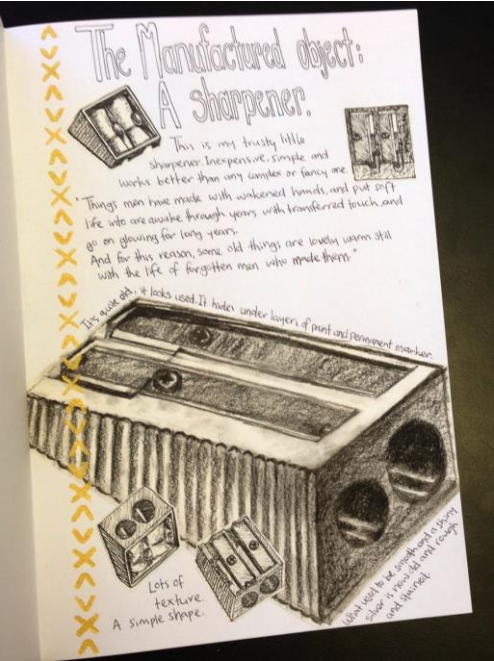 The Manufactured object:
A sharpener.
This is my trusty little
sharpener. Inexpensive, simple and
works better than any complex or fancy one.
"Things men have made with wakened hands, and put soft
life into are awake through years with transferred touch, and
go on glowing for long years.
And for this reason, some old things are lovely warm still
with the life of forgotten men who made them."
It is quite old, it looks used. It hides under layers of paint and permanent marker.
Lots of
texture.
A simple shape.
What used to be smooth and a shiny
silver is now old and rough
and stained.